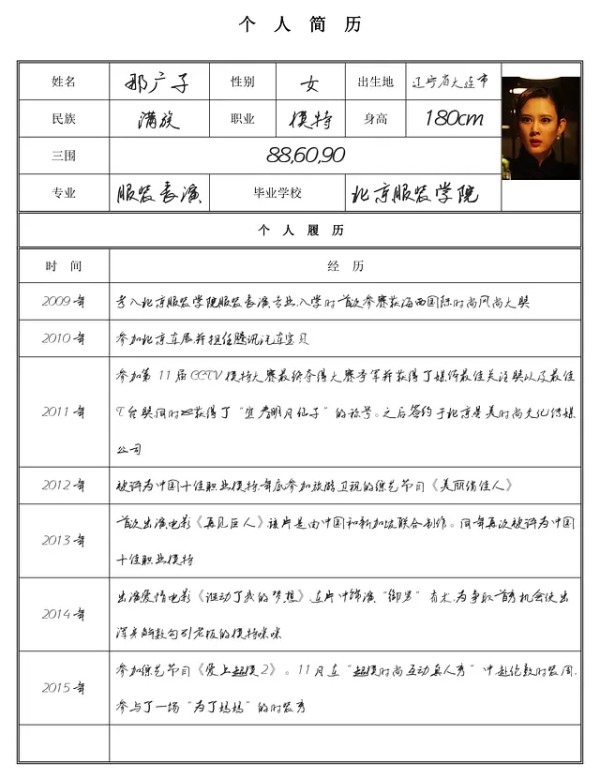 个 人 简 历
姓名 那广子 性别 女 出生地 辽宁省大连市
民族 满族 职业 模特 身高 180cm
三围 88,60,90
专业 服装表演 毕业学校 北京服装学院
个 人 履 历
时 间 经 历
2009年 考入北京服装学院服装表演专业,入学时首次参赛获海西国际时尚风尚大奖
2010年 参加北京车展并担任腾讯汽车宝贝
2011年 参加第11届CCTV模特大赛最终夺得大赛季军并获得了媒体最佳关注奖以及最佳
T台奖同时 获得了“宜春明月仙子”的称号。之后签约于北京 美时尚文化传媒
公司
2012年 被评为中国十佳职业模特,年底参加旅游卫视的综艺节目《美丽俏佳人》
2013年 首次出演电影《再见巨人》该片是由中国和新加坡联合制作。同年再次被评为中国
十佳职业模特
2014年 出演爱情电影《谁动了我的梦想》,在片中饰演“御男”有术,为争取首秀机会使出
浑身解数勾引老板的模特咪咪
2015年 参加综艺节目《爱上超模2》。11月在“超模时尚互动真人秀”中赴伦敦时装周,
参与了一场“为了妈妈”的时装秀